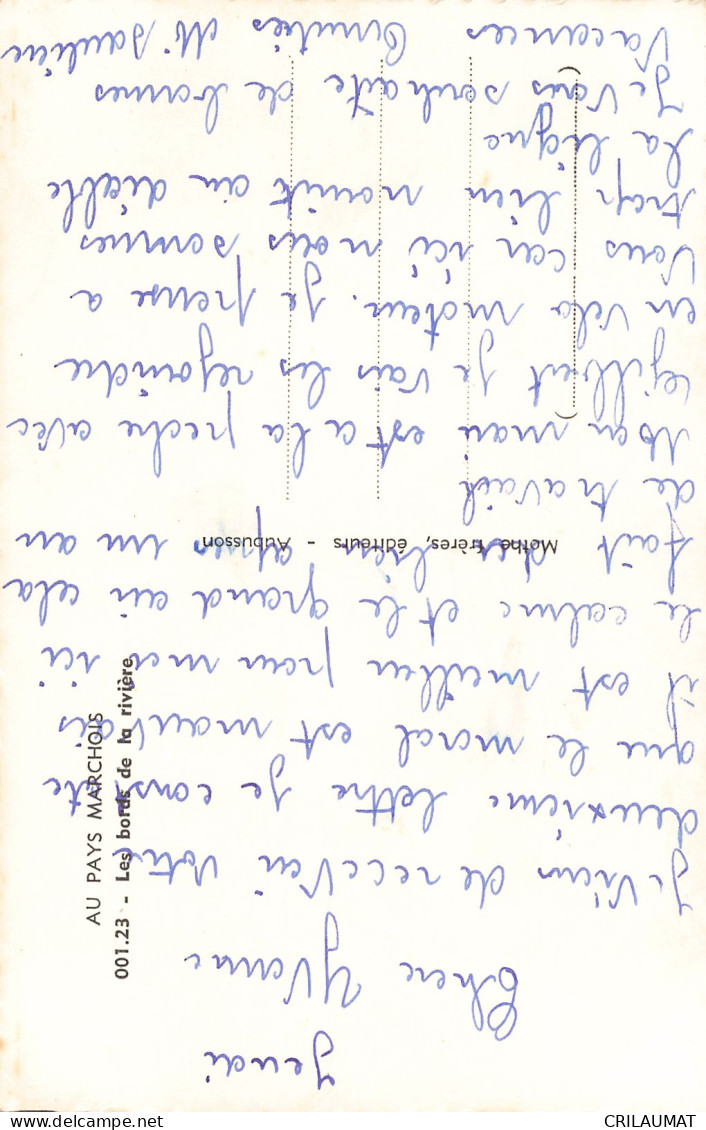 Jeudi
Chere Yvonne
Je viens de recevoir votre
deuxième lettre je constate
que le moral est mauvais
il est meilleur pour moi ici
le calme et le grand air cela
fait du bien apres un an
de travail
Mon mari est a la peche avec
Gilbert je vais les rejoindre
en velo moteur. Je pense a
vous car ici nous sommes
trop bien nourit au diable
la ligne
Je vous souhaite de bonnes
vacances Amitiés
Mothe frères, éditeurs - Aubusson
AU PAYS MARCHOIS
001.23 - Les bords de la rivière
CRILAUMAT